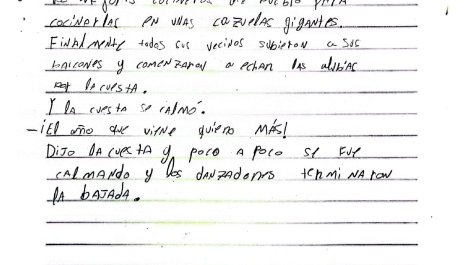 cocineros de pueblo para
cocinarlas en unas cazuelas gigantes.
Finalmente todos sus vecinos subieron a sus
balcones y comenzaron a echar las alubias
por la cuesta.
Y la cuesta se calmó.
—¡El año que viene quiero MÁS!
Dijo la cuesta y poco a poco se fue
calmando y los danzadores terminaron
la bajada.